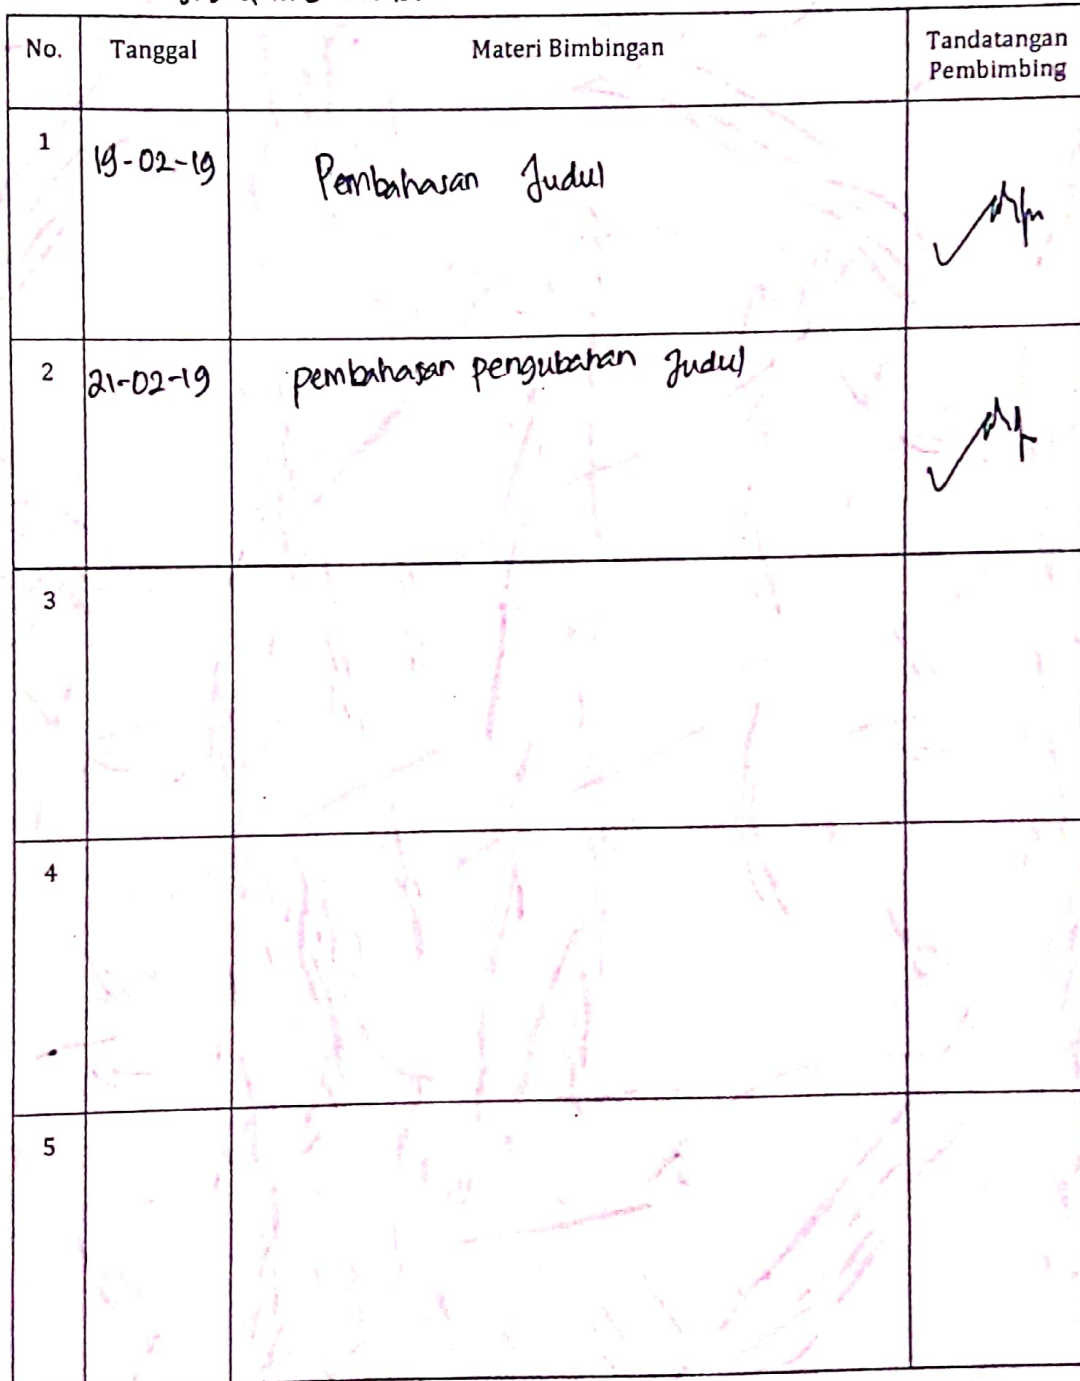 No. Tanggal Materi Bimbingan Tandatangan
Pembimbing
1 19-02-19 Pembahasan Judul
2 21-02-19 pembahasan pengubahan Judul
3
4
5